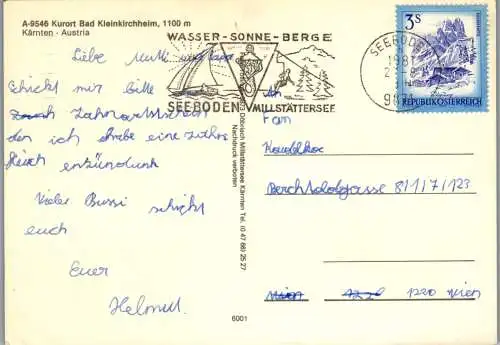 A-9546 Kurort Bad Kleinkirchheim, 1100 m
Kärnten · Austria
WASSER-SONNE-BERGE
SEEBODEN
MILLSTÄTTERSEE
SEEBODEN
3S
REPUBLIK ÖSTERREICH
Liebe Mutti
schickt mir bitte
Zahnarztschein
den ich habe eine Zahn
fleisch entzündung
Viele Bussi schickt
euch
Euer
Helmut
An
Fam
Berchtoldgasse 8/1/7/123
1220 Wien
Millstättersee Kärnten Tel. (0 47 66) 25 27
Nachdruck verboten
6001